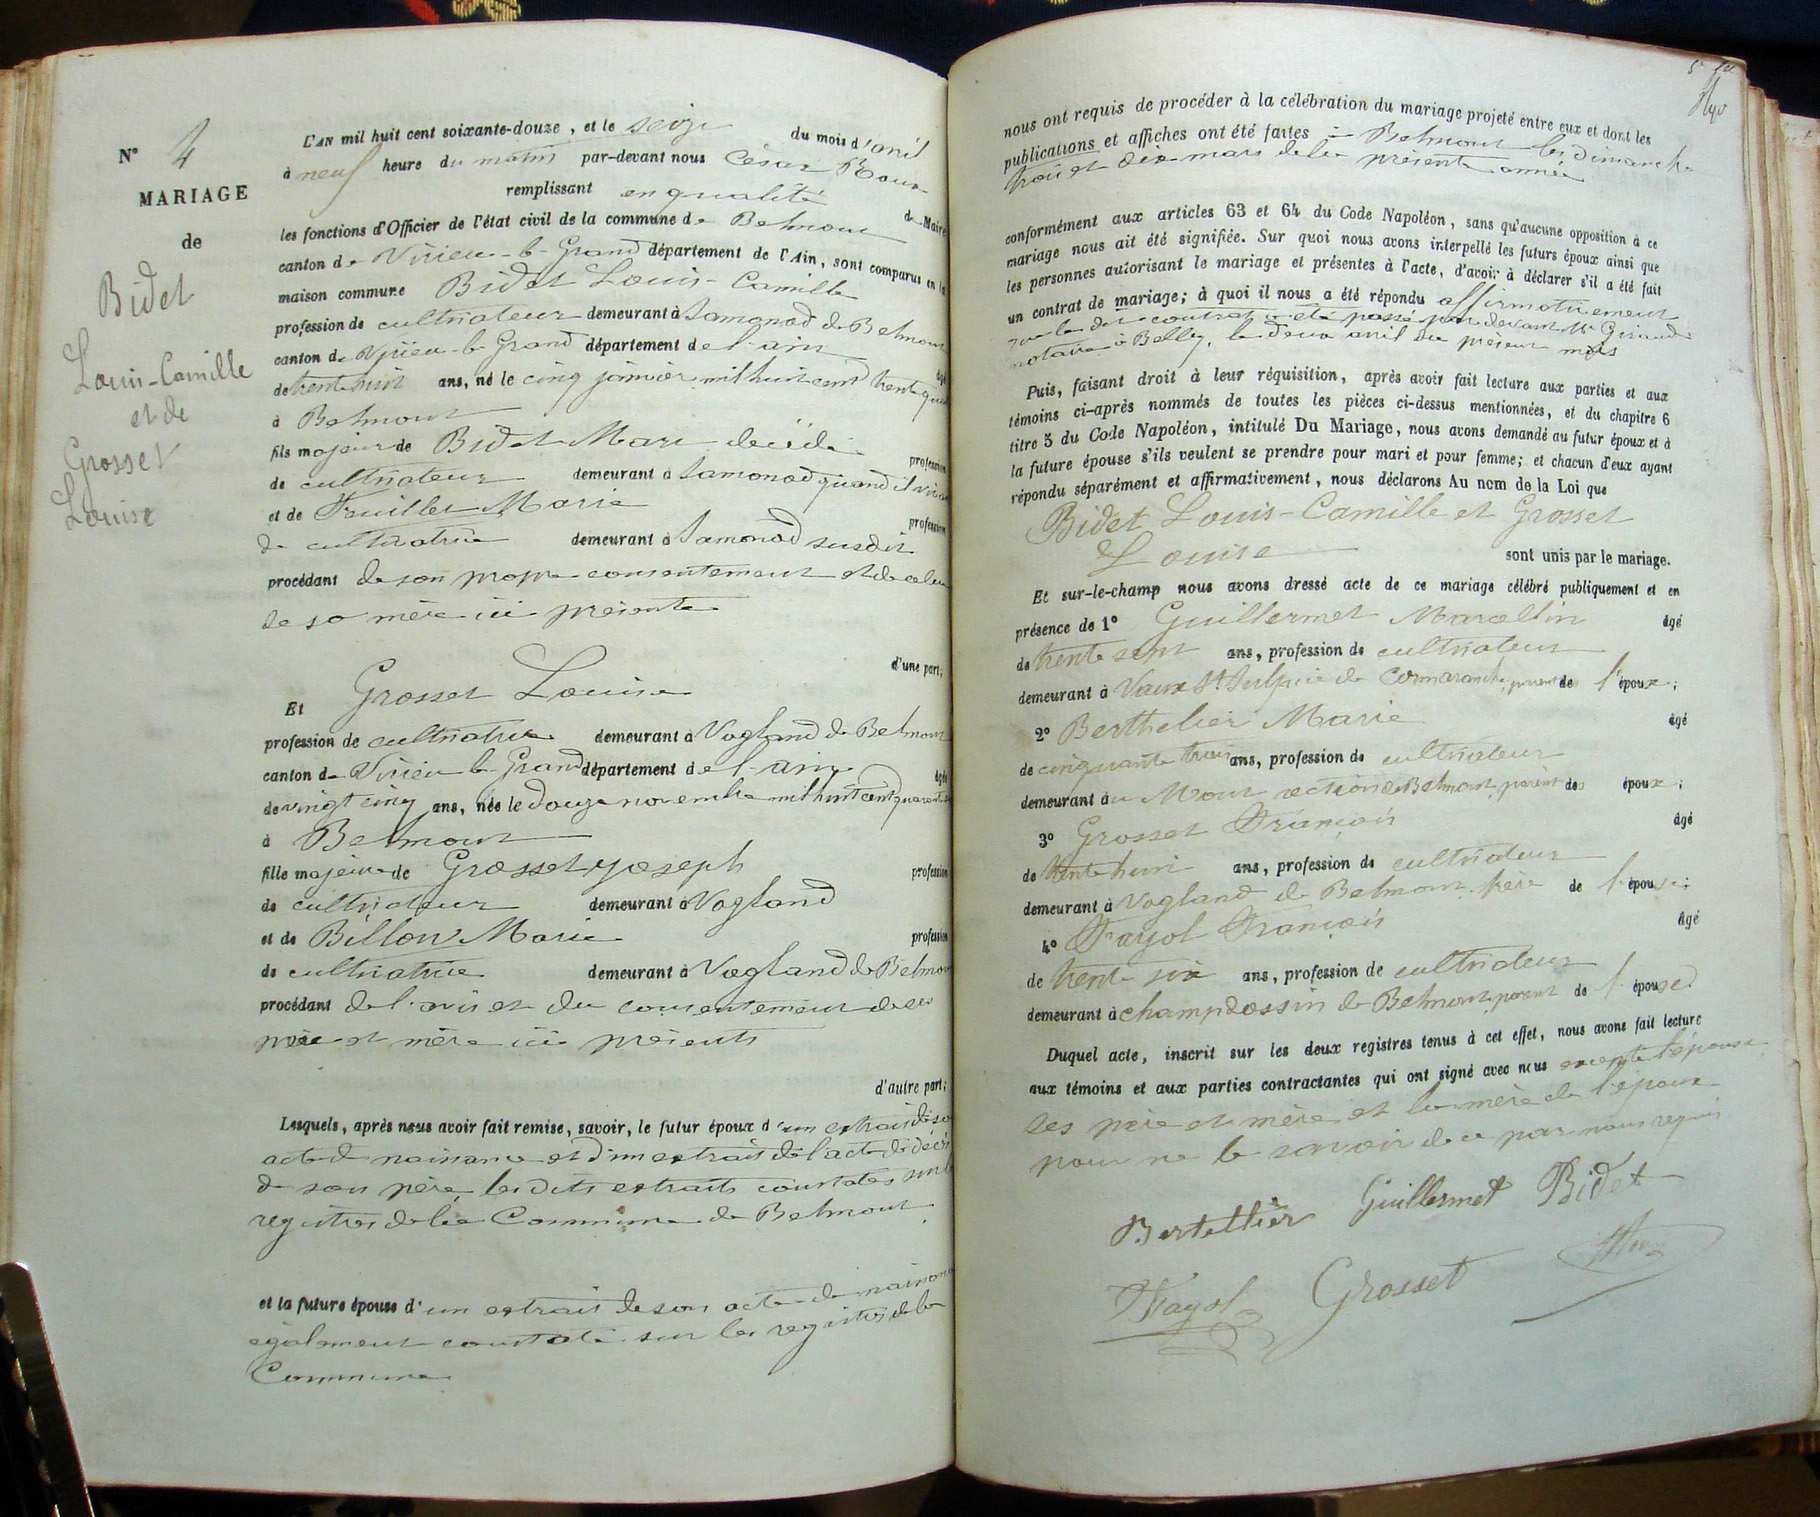 N° 4
MARIAGE
de
Bidet
Louis-Camille
et de
Grosset
Louise
L'AN mil huit cent soixante-douze, et le seize du mois d'avril
à neuf heure du matin par-devant nous César Roux
remplissant en qualité de Maire
les fonctions d'Officier de l'état civil de la commune de Belmont
canton de Virieu-le-Grand département de l'Ain, sont comparus en la
maison commune Bidet Louis-Camille
profession de cultivateur demeurant à Samonod de Belmont
canton de Virieu-le-Grand département de l'ain âgé
de trente huit ans, né le cinq janvier mil huit cent trente quatre
à Belmont
fils majeur de Bidet Marc décédé profession
de cultivateur demeurant à Samonod quand il vivait
et de Fouillet Marie profession
de cultivatrice demeurant à Samonod susdit
procédant de son propre consentement et de celui
de sa mère ici présente
d'une part;
Et Grosset Louise
profession de cultivatrice demeurant à Vogland de Belmont
canton de Virieu le Grand département de l'ain âgée
de vingt cinq ans, née le douze novembre mil huit cent quarante
à Belmont
fille majeure de Grosset Joseph profession
de cultivateur demeurant à Vogland
et de Billon Marie profession
de cultivatrice demeurant à Vogland de Belmont
procédant de l'avis et du consentement de ses
père et mère ici présents
d'autre part;
Lesquels, après nous avoir fait remise, savoir, le futur époux d'un extrait de son
acte de naissance et d'un extrait de l'acte de décès
de son père, les dits extraits constatés sur les
registres de la Commune de Belmont
et la future épouse d'un extrait de son acte de naissance
également constaté sur les registres de la
Commune
nous ont requis de procéder à la célébration du mariage projeté entre eux et dont les
publications et affiches ont été faites à Belmont les dimanche
trois et dix mars de la présente année
conformément aux articles 63 et 64 du Code Napoléon, sans qu'aucune opposition à ce
mariage nous ait été signifiée. Sur quoi nous avons interpellé les futurs époux ainsi que
les personnes autorisant le mariage et présentes à l'acte, d'avoir à déclarer s'il a été fait
un contrat de mariage; à quoi il nous a été répondu affirmativement
que le dit contrat a été passé par devant Me Giraud
notaire à Belley, le deux avril du présent mois
Puis, faisant droit à leur réquisition, après avoir fait lecture aux parties et aux
témoins ci-après nommés de toutes les pièces ci-dessus mentionnées, et du chapitre 6
titre 5 du Code Napoléon, intitulé Du Mariage, nous avons demandé au futur époux et à
la future épouse s'ils veulent se prendre pour mari et pour femme; et chacun d'eux ayant
répondu séparément et affirmativement, nous déclarons Au nom de la Loi que
Bidet Louis-Camille et Grosset
Louise sont unis par le mariage.
Et sur-le-champ nous avons dressé acte de ce mariage célébré publiquement et en
présence de 1° Guillermet Marcellin âgé
de trente sept ans, profession de cultivateur
demeurant à Vaux St Sulpice de Cormaranche, parent de l'époux;
2° Berthelier Marie âgé
de cinquante trois ans, profession de cultivateur
demeurant au Mont section de Belmont, parent des époux;
3° Grosset François âgé
de trente huit ans, profession de cultivateur
demeurant à Vogland de Belmont, frère de l'épouse;
4° Fayol François âgé
de trente six ans, profession de cultivateur
demeurant à champdossin de Belmont, parent de l'épouse
Duquel acte, inscrit sur les deux registres tenus à cet effet, nous avons fait lecture
aux témoins et aux parties contractantes qui ont signé avec nous excepté l'épouse
ses père et mère et la mère de l'époux
pour ne le savoir de ce par nous requis
Bertellier Guillermet Bidet
Fayol Grosset